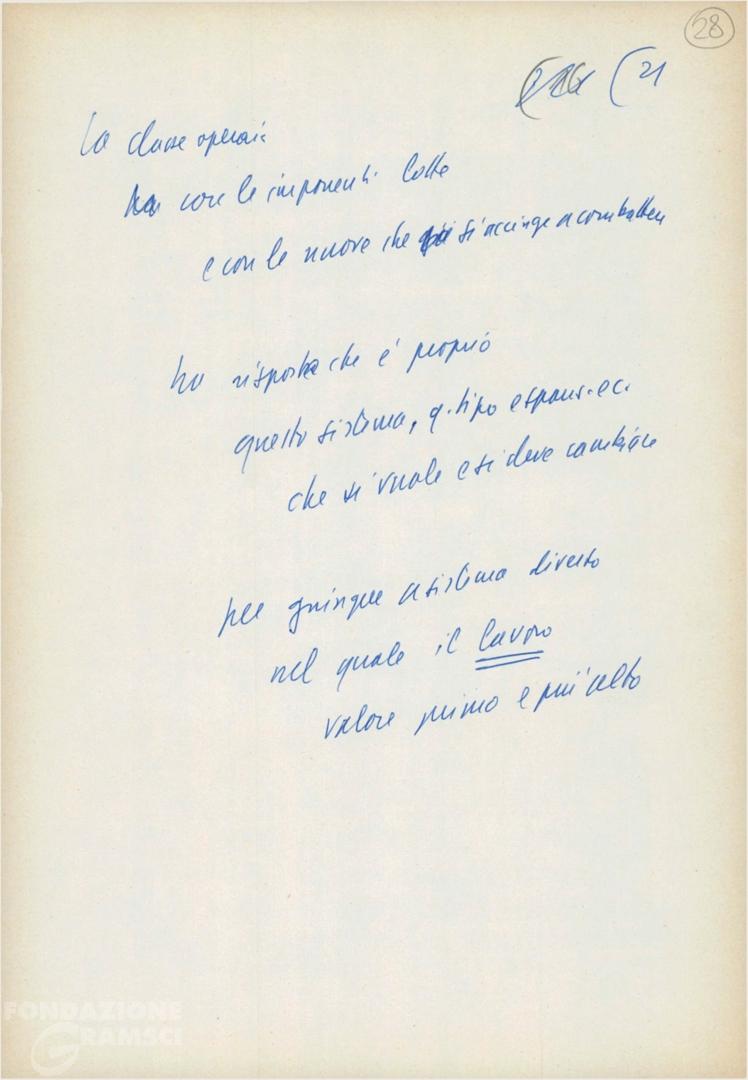 28
(21
La classe operai:
ha con le imponenti lotte
e con le nuove che già si accinge a combattere
ha risposto che è proprio
questo sistema, q. tipo espans. ec.
che si vuole e si deve cambiare
per giungere a sistema diverso
nel quale il lavoro
valore primo e più alto
FONDAZIONE
GRAMSCI